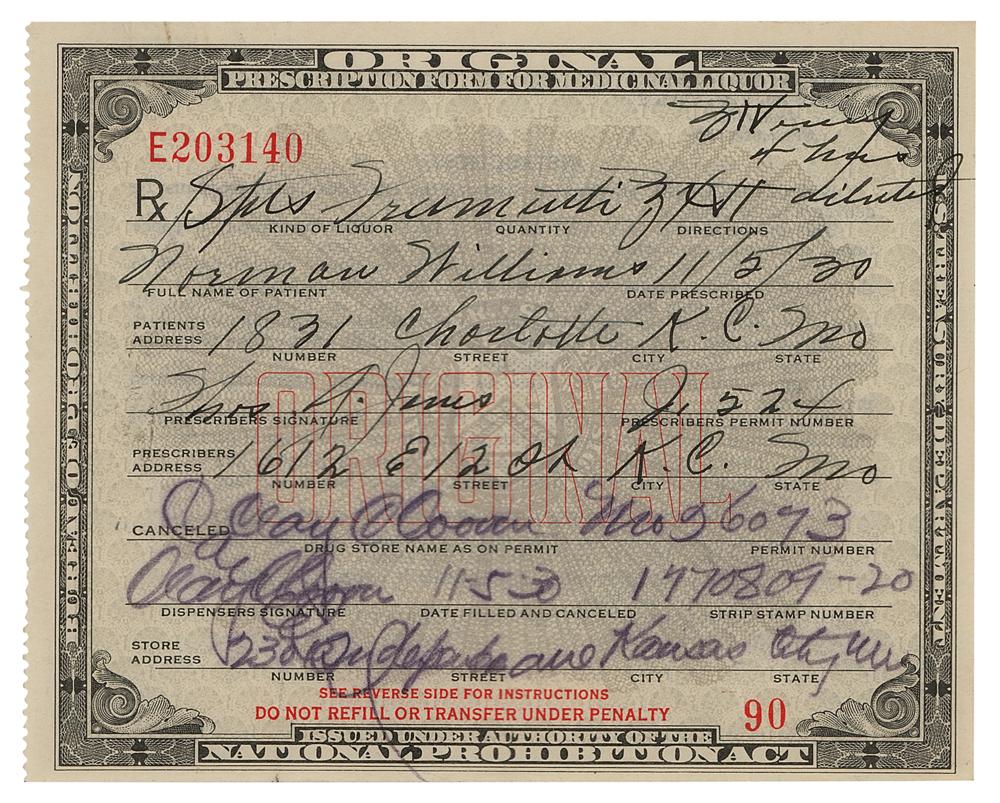 ORIGINAL
PRESCRIPTION FORM FOR MEDICINAL LIQUOR
E203140
4 hrs
Rx Spts Frumenti diluted
KIND OF LIQUOR QUANTITY DIRECTIONS
Norman Williams 11/5/30
FULL NAME OF PATIENT DATE PRESCRIBED
PATIENTS ADDRESS 1831 Charlotte K. C. Mo
NUMBER STREET CITY STATE
Thos A. Jones 524
PRESCRIBERS SIGNATURE PRESCRIBERS PERMIT NUMBER
ORIGINAL
PRESCRIBERS ADDRESS 1612 E 12 St K. C. Mo
NUMBER STREET CITY STATE
CANCELED Mo 56073
DRUG STORE NAME AS ON PERMIT PERMIT NUMBER
11-5-30 1770809-20
DISPENSERS SIGNATURE DATE FILLED AND CANCELED STRIP STAMP NUMBER
STORE ADDRESS Kansas City Mo
NUMBER STREET CITY STATE
SEE REVERSE SIDE FOR INSTRUCTIONS
DO NOT REFILL OR TRANSFER UNDER PENALTY 90
ISSUED UNDER AUTHORITY OF THE
NATIONAL PROHIBITION ACT